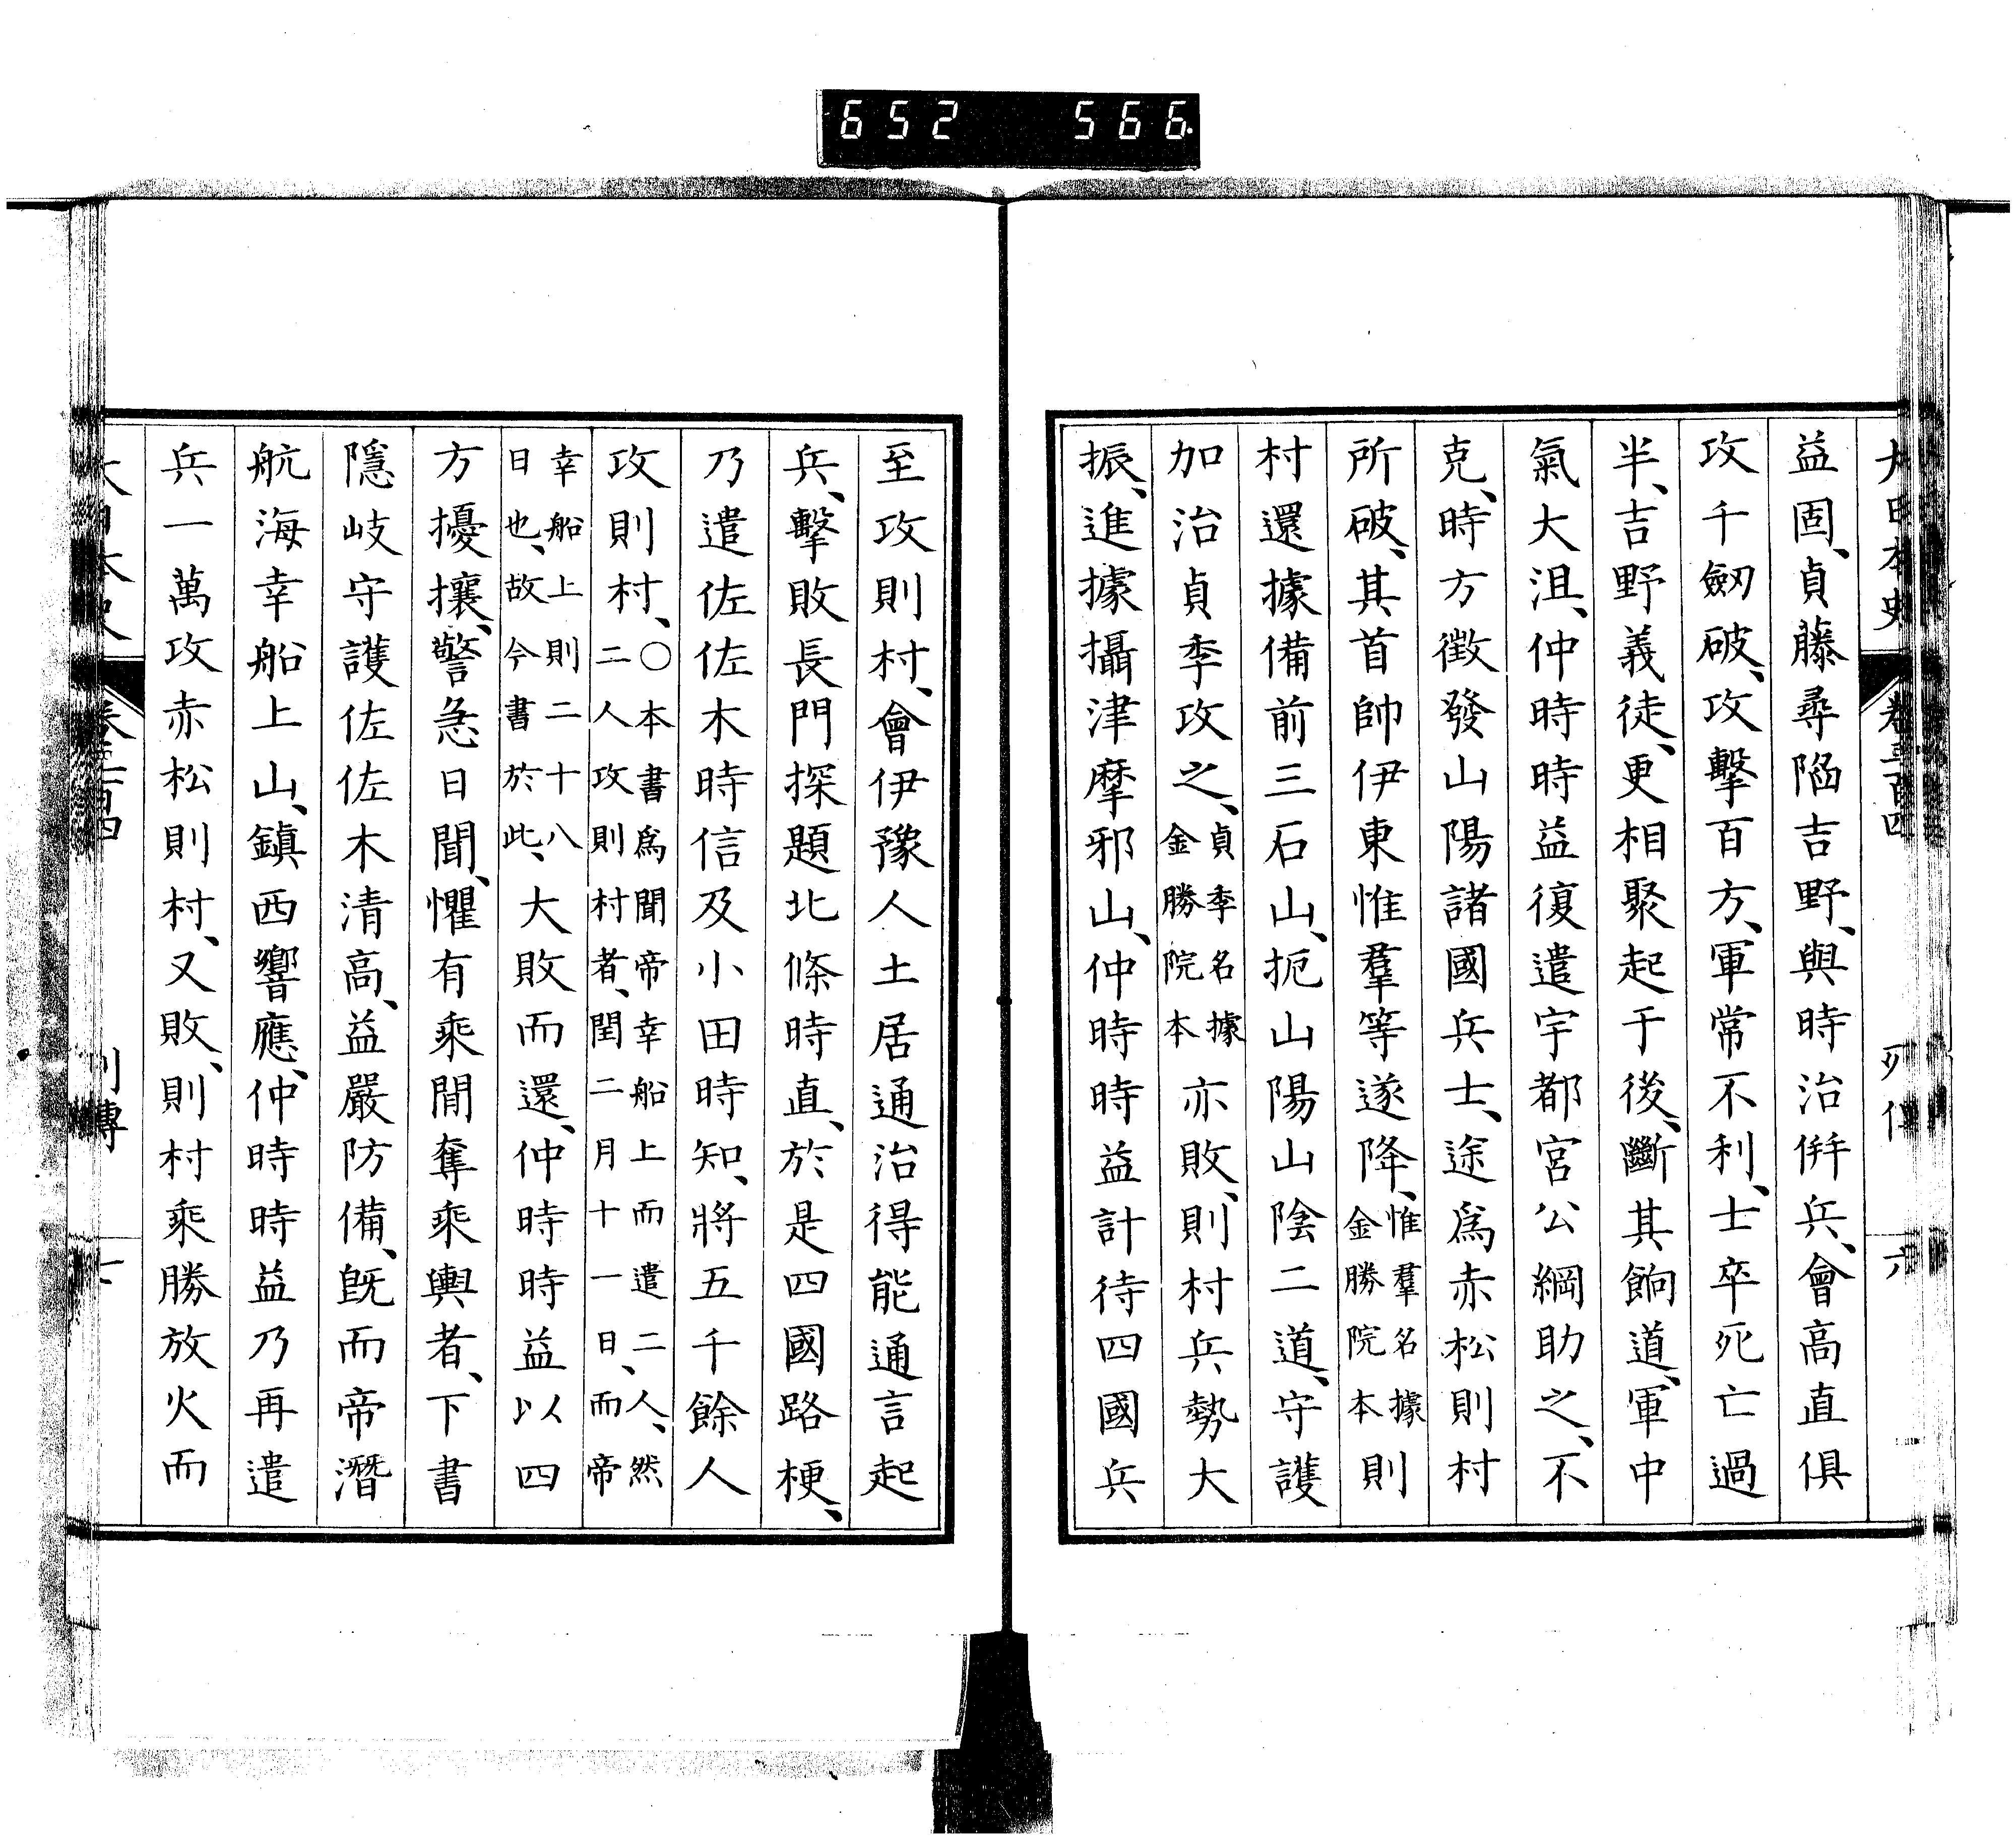 652 566
大日本史 卷三百四 列傳 六
益固、貞藤尋陷吉野、與時治併兵、會高直俱
攻千劒破、攻擊百方、軍常不利、士卒死亡過
半、吉野義徒、更相聚起于後、斷其餉道、軍中
氣大沮、仲時時益復遣宇都宮公綱助之、不
克、時方徵發山陽諸國兵士、途爲赤松則村
所破、其首帥伊東惟羣等遂降、惟羣名據金勝院本則
村還據備前三石山、扼山陽山陰二道、守護
加治貞季攻之、貞季名據金勝院本亦敗、則村兵勢大
振、進據攝津摩邪山、仲時時益計待四國兵
至攻則村、會伊豫人土居通治得能通言起
兵、擊敗長門探題北條時直、於是四國路梗、
乃遣佐佐木時信及小田時知、將五千餘人
攻則村、○本書爲聞帝幸船上而遣二人、然二人攻則村者、閏二月十一日、而帝
幸船上則二十八日也、故今書於此、大敗而還、仲時時益以四
方擾攘、警急日聞、懼有乘閒奪乘輿者、下書
隱岐守護佐佐木清高、益嚴防備、旣而帝潛
航海幸船上山、鎭西響應、仲時時益乃再遣
兵一萬攻赤松則村、又敗、則村乘勝放火而
大日本史 卷三百四 列傳 七